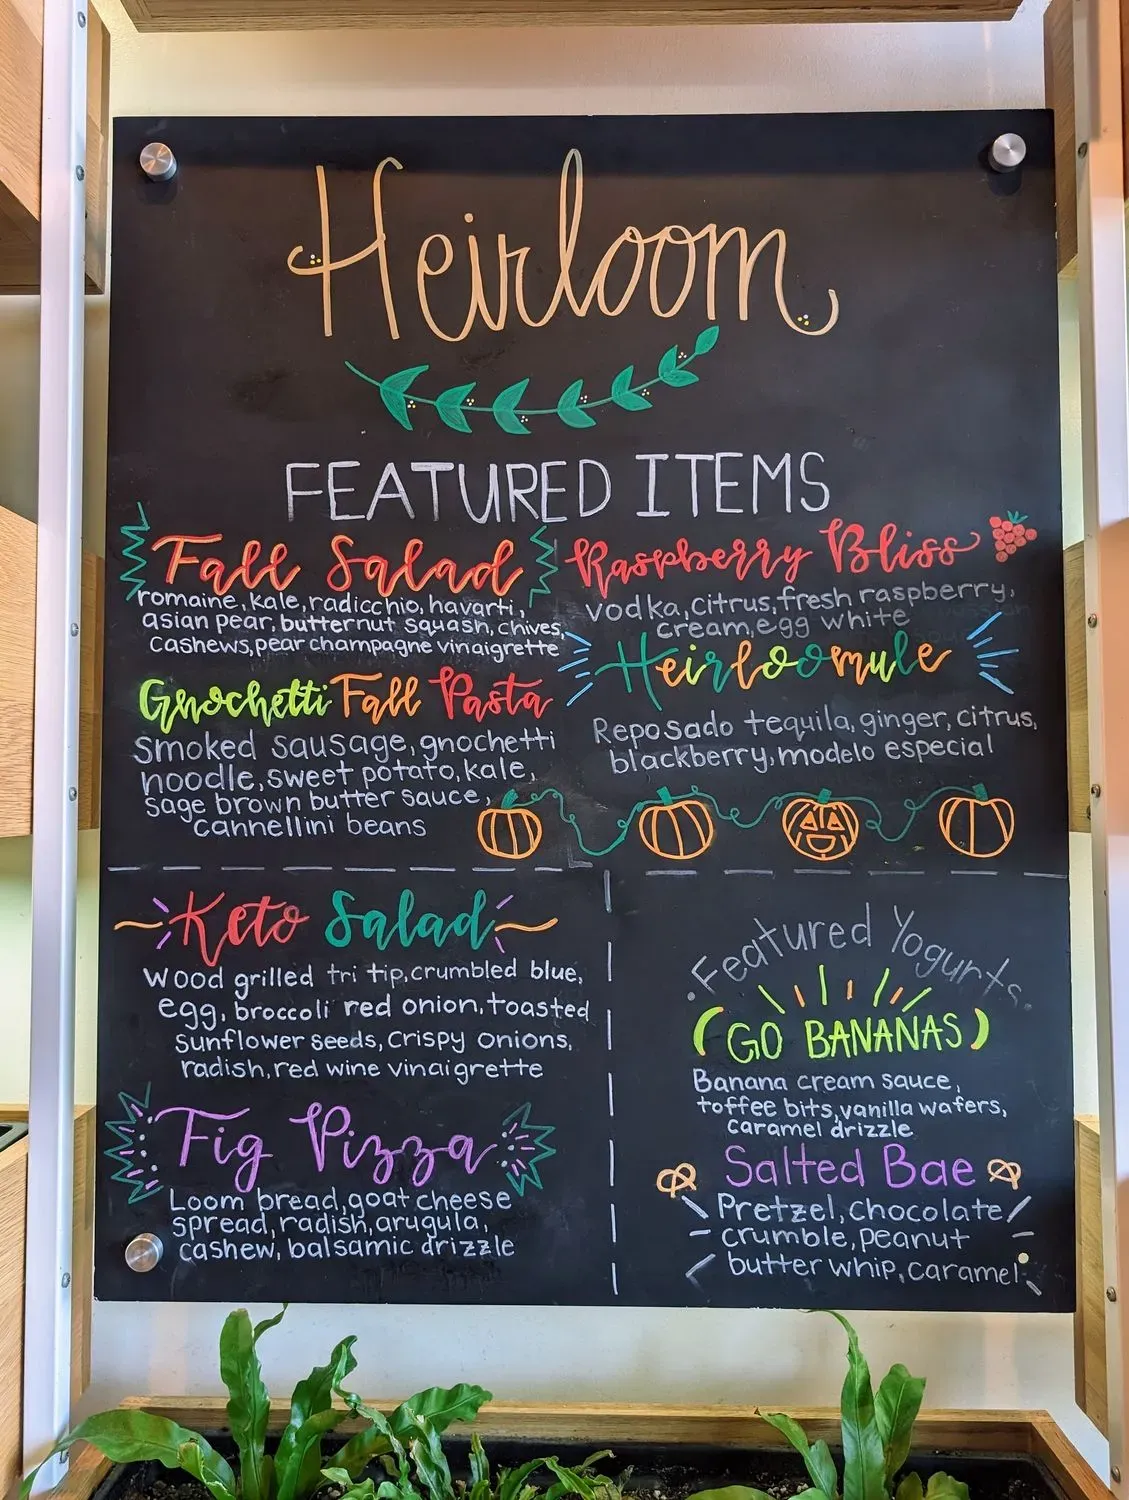 Heirloom
FEATURED ITEMS
Fall Salad
romaine, kale, radicchio, havarti,
asian pear, butternut squash, chives,
cashews, pear champagne vinaigrette
Gnochetti Fall Pasta
Smoked sausage, gnochetti
noodle, sweet potato, kale,
sage brown butter sauce,
cannellini beans
Raspberry Bliss
vodka, citrus, fresh raspberry,
cream, egg white
Heirloomule
Reposado tequila, ginger, citrus,
blackberry, modelo especial
Keto Salad
Wood grilled tri tip, crumbled blue,
egg, broccoli red onion, toasted
sunflower seeds, crispy onions,
radish, red wine vinaigrette
Fig Pizza
Loom bread, goat cheese
spread, radish, arugula,
cashew, balsamic drizzle
.Featured Yogurts.
(GO BANANAS)
Banana cream sauce,
toffee bits, vanilla wafers,
caramel drizzle
Salted Bae
Pretzel, chocolate
crumble, peanut
butter whip, caramel